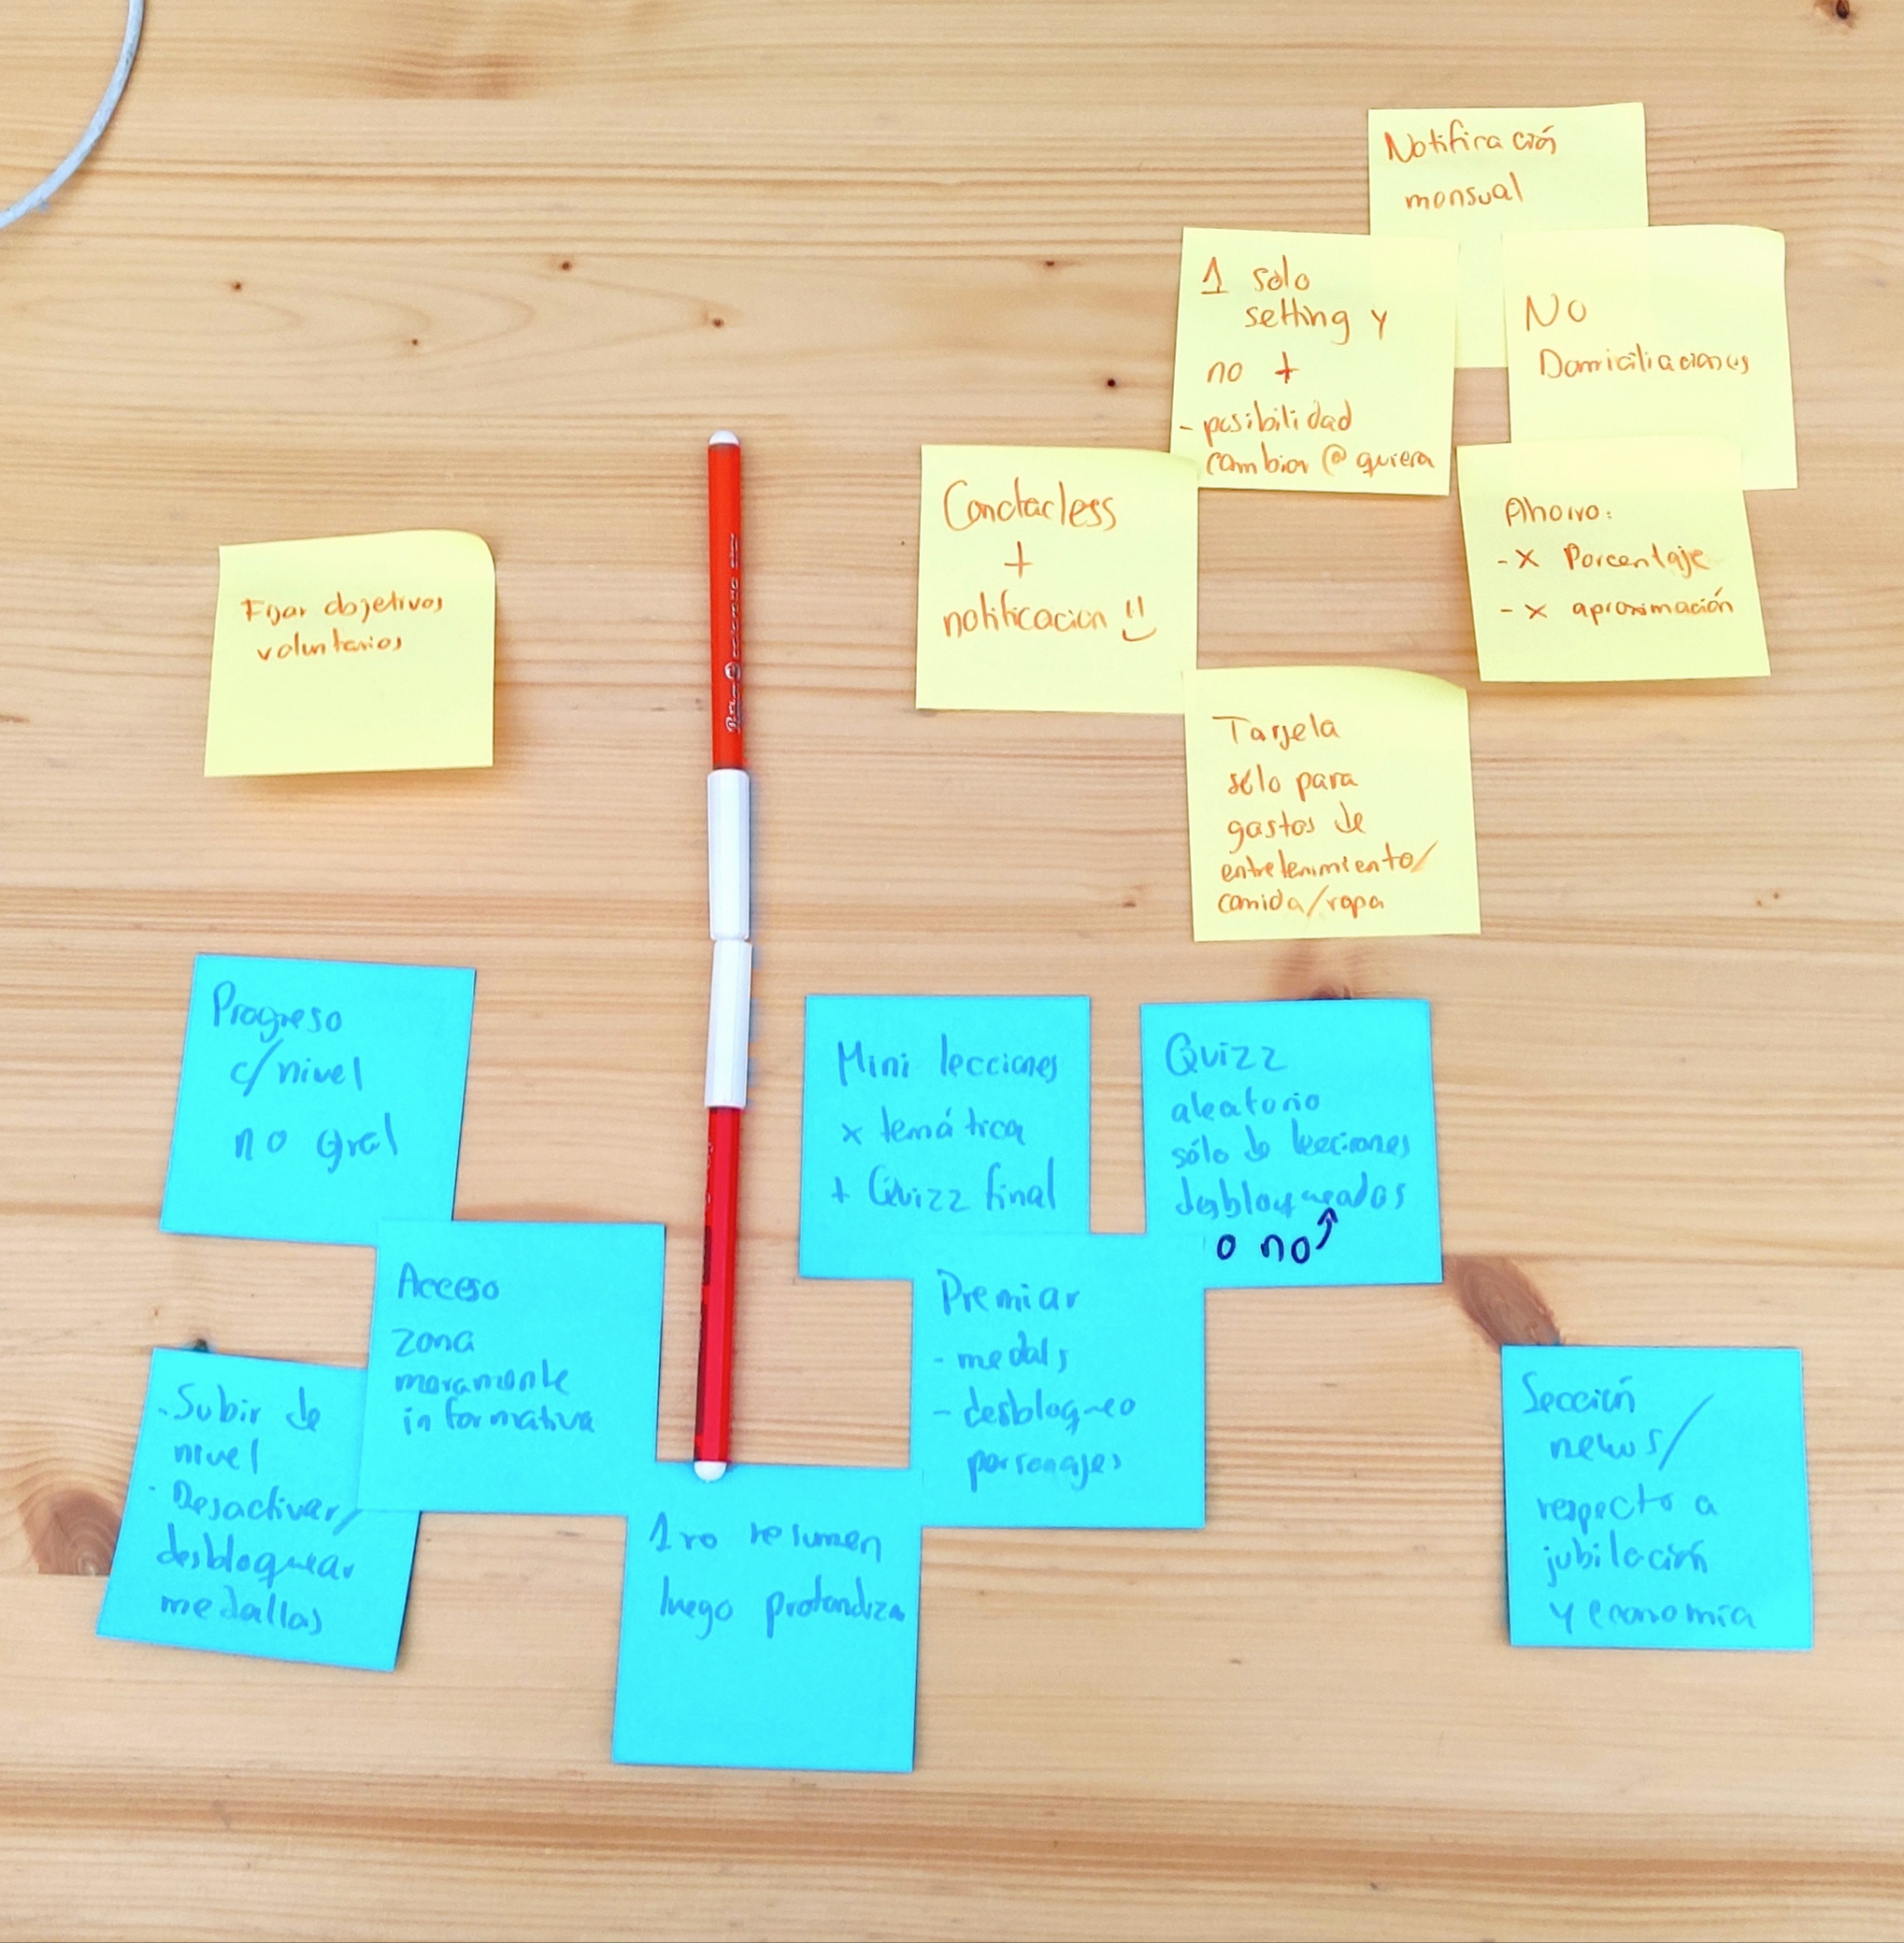 Notificación
monsual
1 solo
setting y
no +
- posibilidad
cambior @ quiera
No
Domiciliaciones
Contacless
+
notificacion
Ahorro:
- x Porcentaje
- x aproximación
Fijar objetivos
voluntarios
Tarjeta
sólo para
gastos de
entretenimiento/
comida/ropa
Progreso
c/nivel
no gral
Mini lecciones
x temática
+ Quizz final
Quizz
aleatorio
sólo de lecciones
desbloqueados
o no
Acceso
zona
meramente
informativa
Premiar
- medals
- desbloqueo
personajes
- Subir de
nivel
- Desactivar/
desbloquear
medallas
Sección
news/
respecto a
jubilación
y economía
1ro resumen
luego profundizar